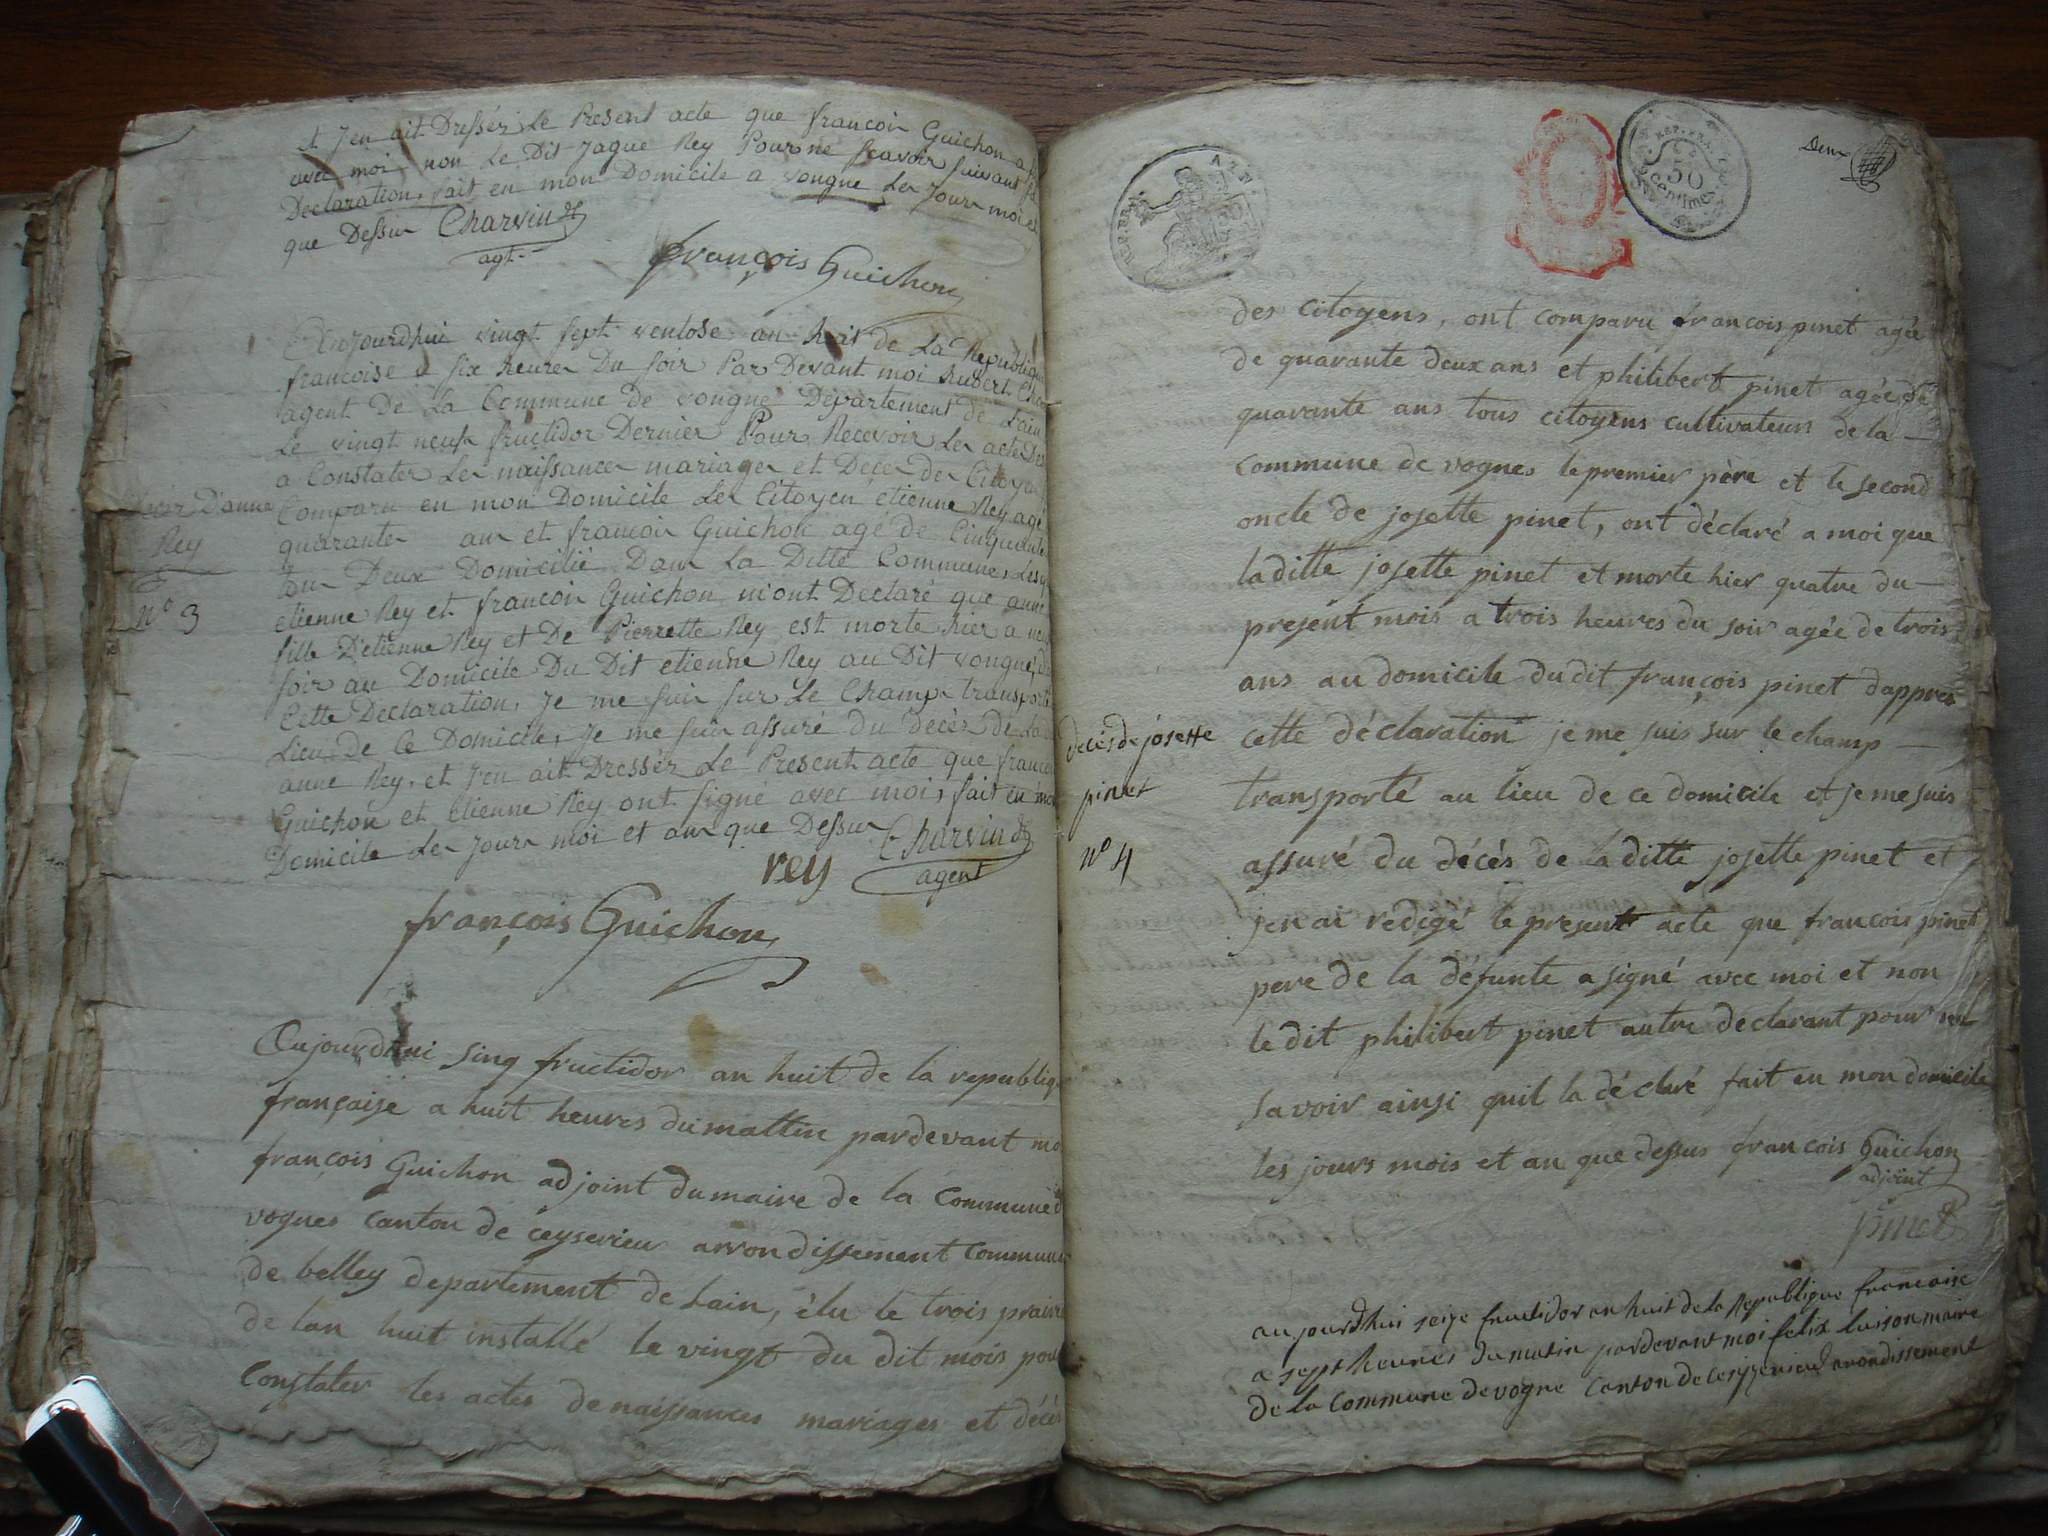 et j'en ait Dressér Le Present acte que francoin Guichon a
avec moi non Le Dit Jaque Rey Pour ne scavoir suivant
Declaration, fait en mon Domicile a vongne Les Jour moi et
que Dessur Charvin
agt.
françois Guichon
Aujourdhui vingt sept ventose an huit de La Republique
francoise a six heures Du soir Par Devant moi hubert
agent De La Commune de vongne Département de Lain
Le vingt neuf fructidor Dernier Pour Recevoir Les actes
a Constater Les naissances mariages et Decer des Citoyen
Comparu en mon Domicile Les Citoyen étienne Rey agé
quarante ans et francoin Guichon agé de Cinquante
tous Deux Domicilié Dans La Ditte Commune,
etienne Rey et francoin Guichon m'ont Declaré que anne
fille D'etienne Rey et De Pierrette Rey est morte hier a
soir au Domicile Du Dit etienne Rey au Dit vongne,
Cette Declaration, Je me suis sur Le Champ transporté
Lieu de Ce Domicile, Je me suis assuré du decès de La
anne Rey, et J'en ait Dressér Le Present acte que
Guichon et étienne Rey ont signé avec moi, fait en mon
Domicile Les Jour moi et an que Dessur Charvin
rey agent
françois Guichon
D'anne
Rey
n° 3
Aujourdhui sinq fructidor an huit de la republiq
française a huit heures du mattin pardevant mo
françois Guichon adjoint du maire de la commune d
vognes canton de ceyserieu arrondissement communa
de belley departement de Lain, élu le trois prairi
de lan huit installé le vingt du dit mois pour
Constater les actes de naissances mariages et décès
REP. FRA.
REP. FRA.
50
centimes
Deux
des citoyens, ont comparu francois pinet agée
de quarante deux ans et philibert pinet agée de
quarante ans tous citoyens cultivateurs de la
commune de vognes le premier père et le second
oncle de josette pinet, ont déclaré a moi que
la ditte josette pinet et morte hier quatre du
present mois a trois heures du soir agée de trois
ans au domicile du dit françois pinet dappres
cette déclaration je me suis sur le champ
transporté au lieu de ce domicile et je me suis
assuré du décés de la ditte josette pinet et
jen ai redigé le present acte que francois pinet
pere de la défunte a signé avec moi et non
le dit philibert pinet autre declarant pour
savoir ainsi quil la déclaré fait en mon domicile
les jours mois et an que dessus francois Guichon
adjoint
pinet
decés de josette
pinet
n° 4
aujourdhui seize fructidor an huit de la Republique francaise
a sept heures du matin pardevant moi felix luison maire
de la commune de vogne canton de ceyzerieu arondissement